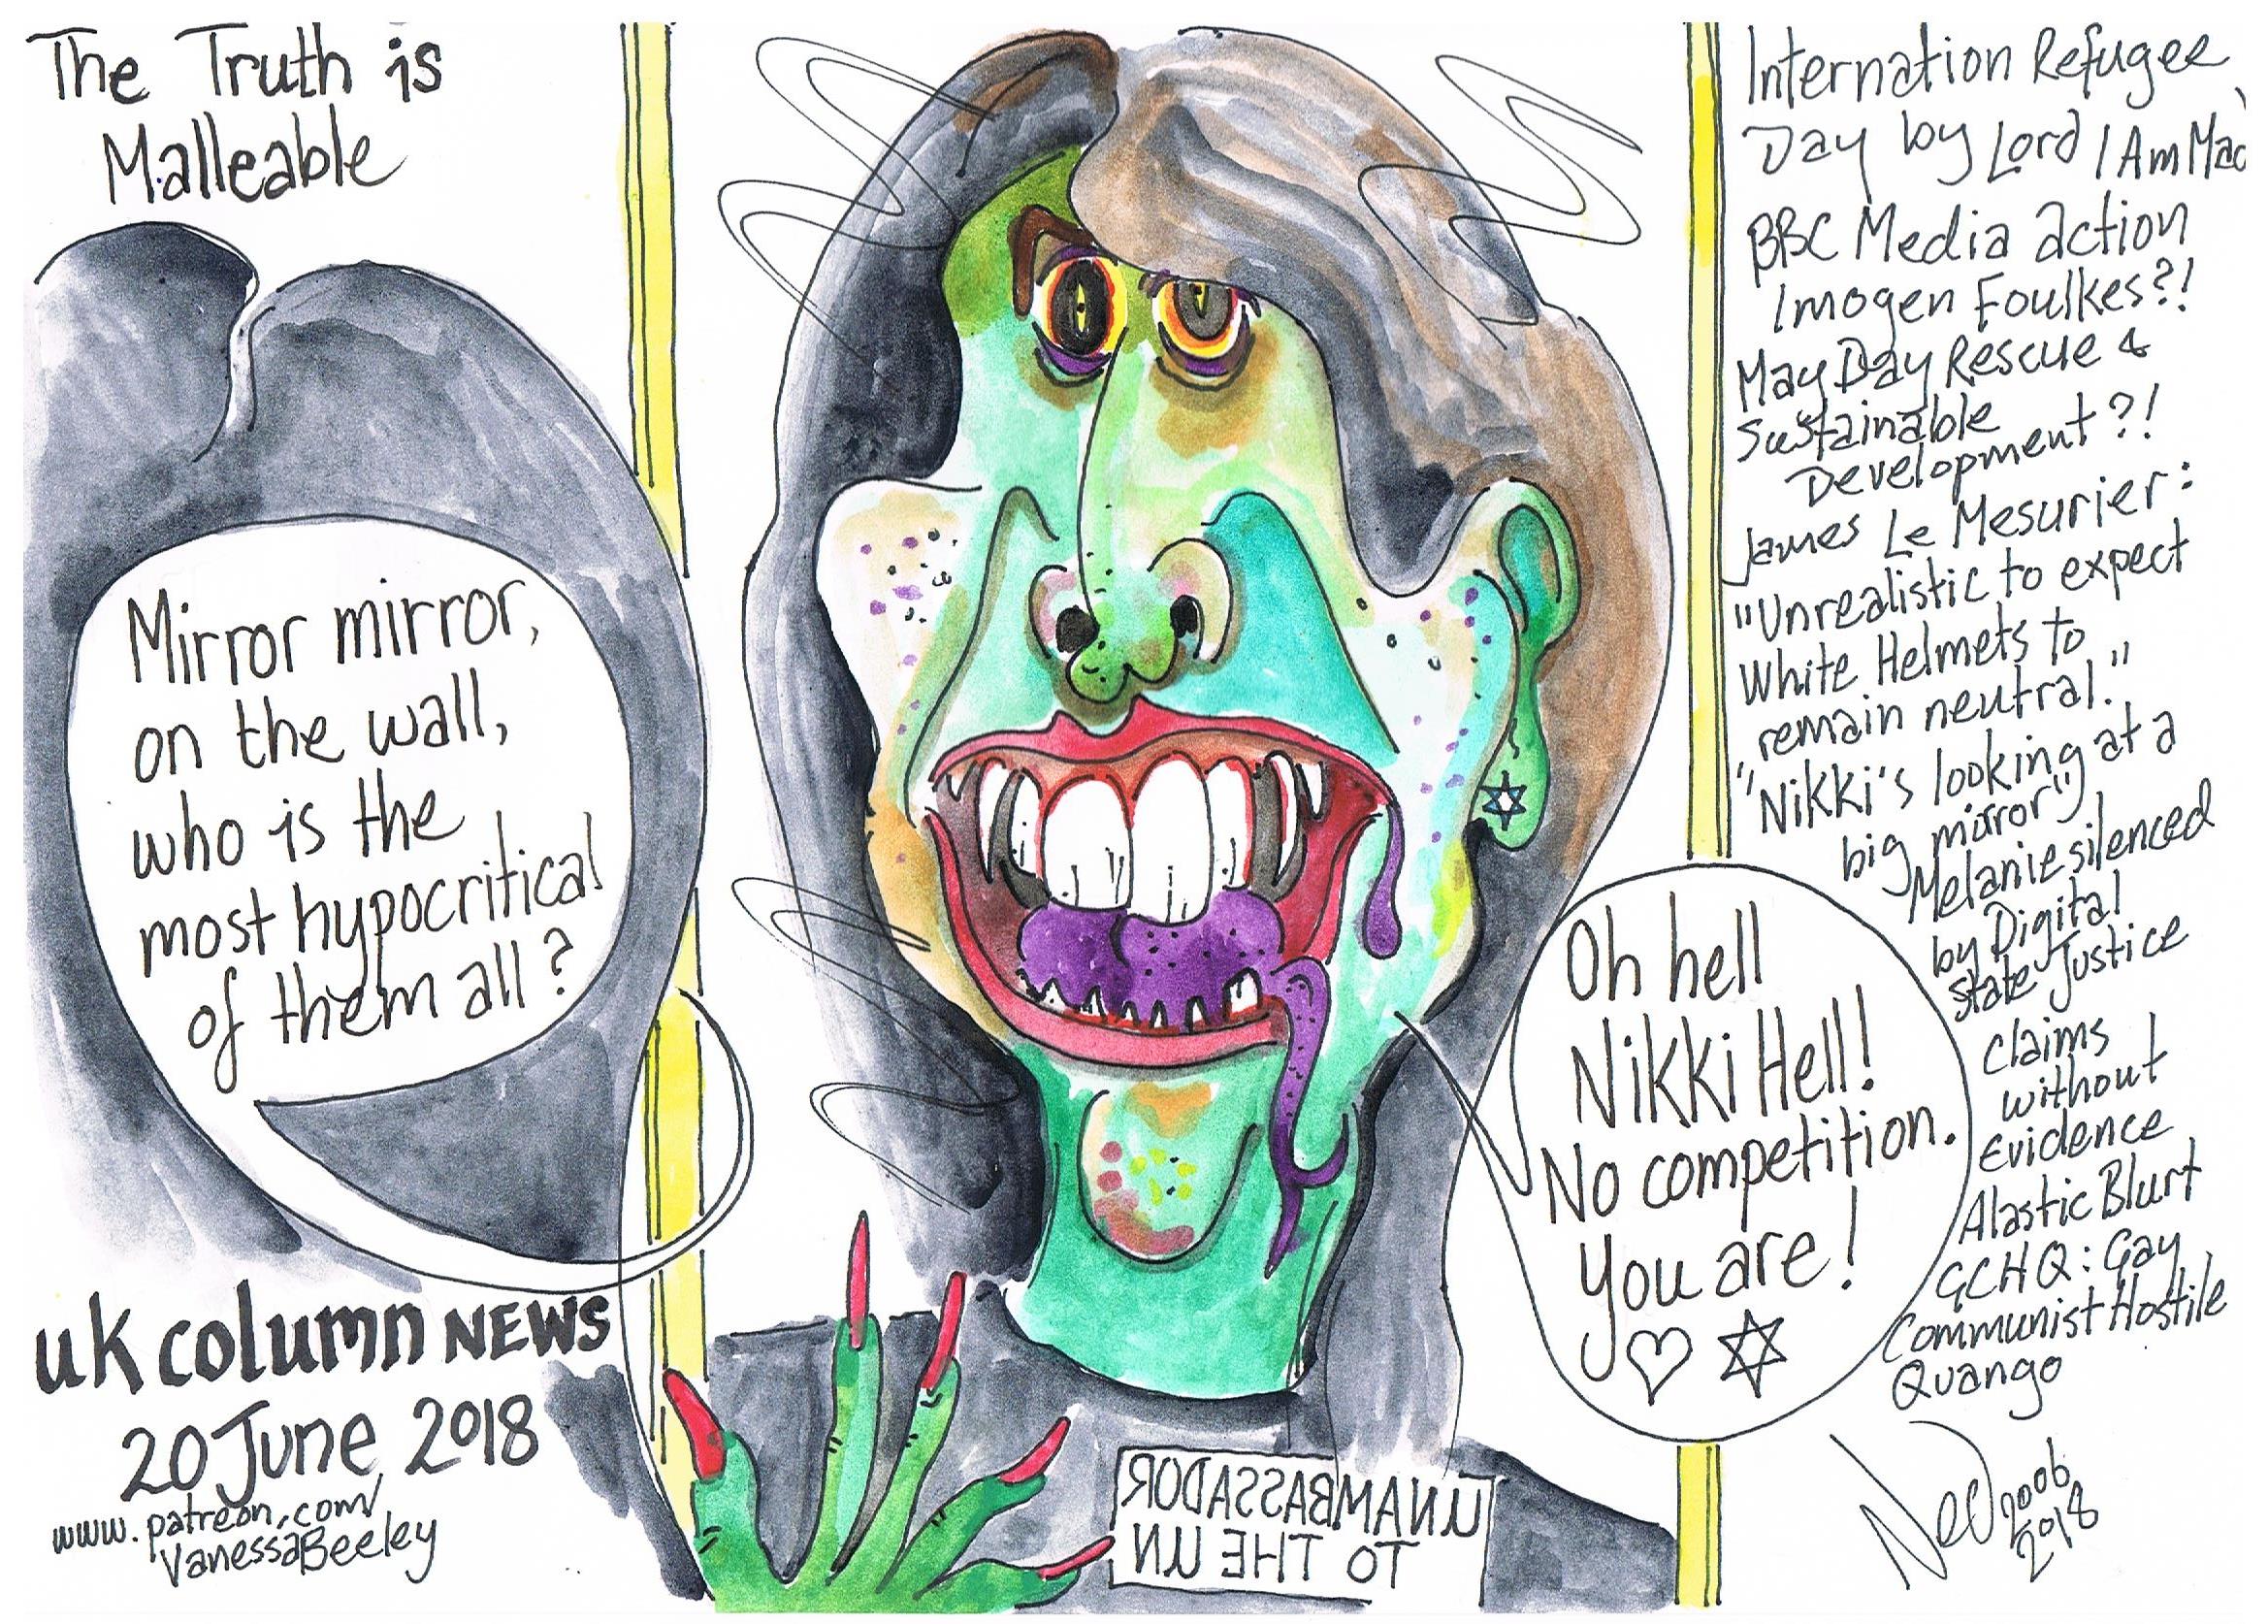 The Truth is
Malleable
Mirror mirror,
on the wall,
who is the
most hypocritical
of them all?
uk column NEWS
20 June, 2018
www.patreon.com/
VanessaBeeley
UNAMBASSADOR
TO THE UN
Oh hell
Nikki Hell!
No competition.
You are!
Internation Refugee
Day by Lord I Am Mad
BBC Media action
Imogen Foulkes?!
May Day Rescue &
Sustainable
Development?!
James Le Mesurier:
"Unrealistic to expect
White Helmets to
remain neutral."
"Nikki's looking at a
big mirror"
Melanie silenced
by Digital
State Justice
Claims
without
Evidence
Alastic Blurt
GCHQ: Gay
Communist Hostile
Quango
Ned 2006
2018